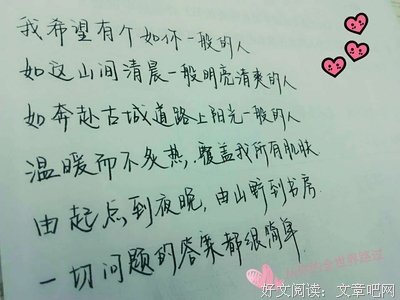 我希望有个如你一般的人
如这山间清晨一般明亮清爽的人
如奔赴古城道路上阳光一般的人
温暖而不炙热,覆盖我所有肌肤
由起点到夜晚,由山野到书房
一切问题的答案都很简单
好文阅读:文章吧网